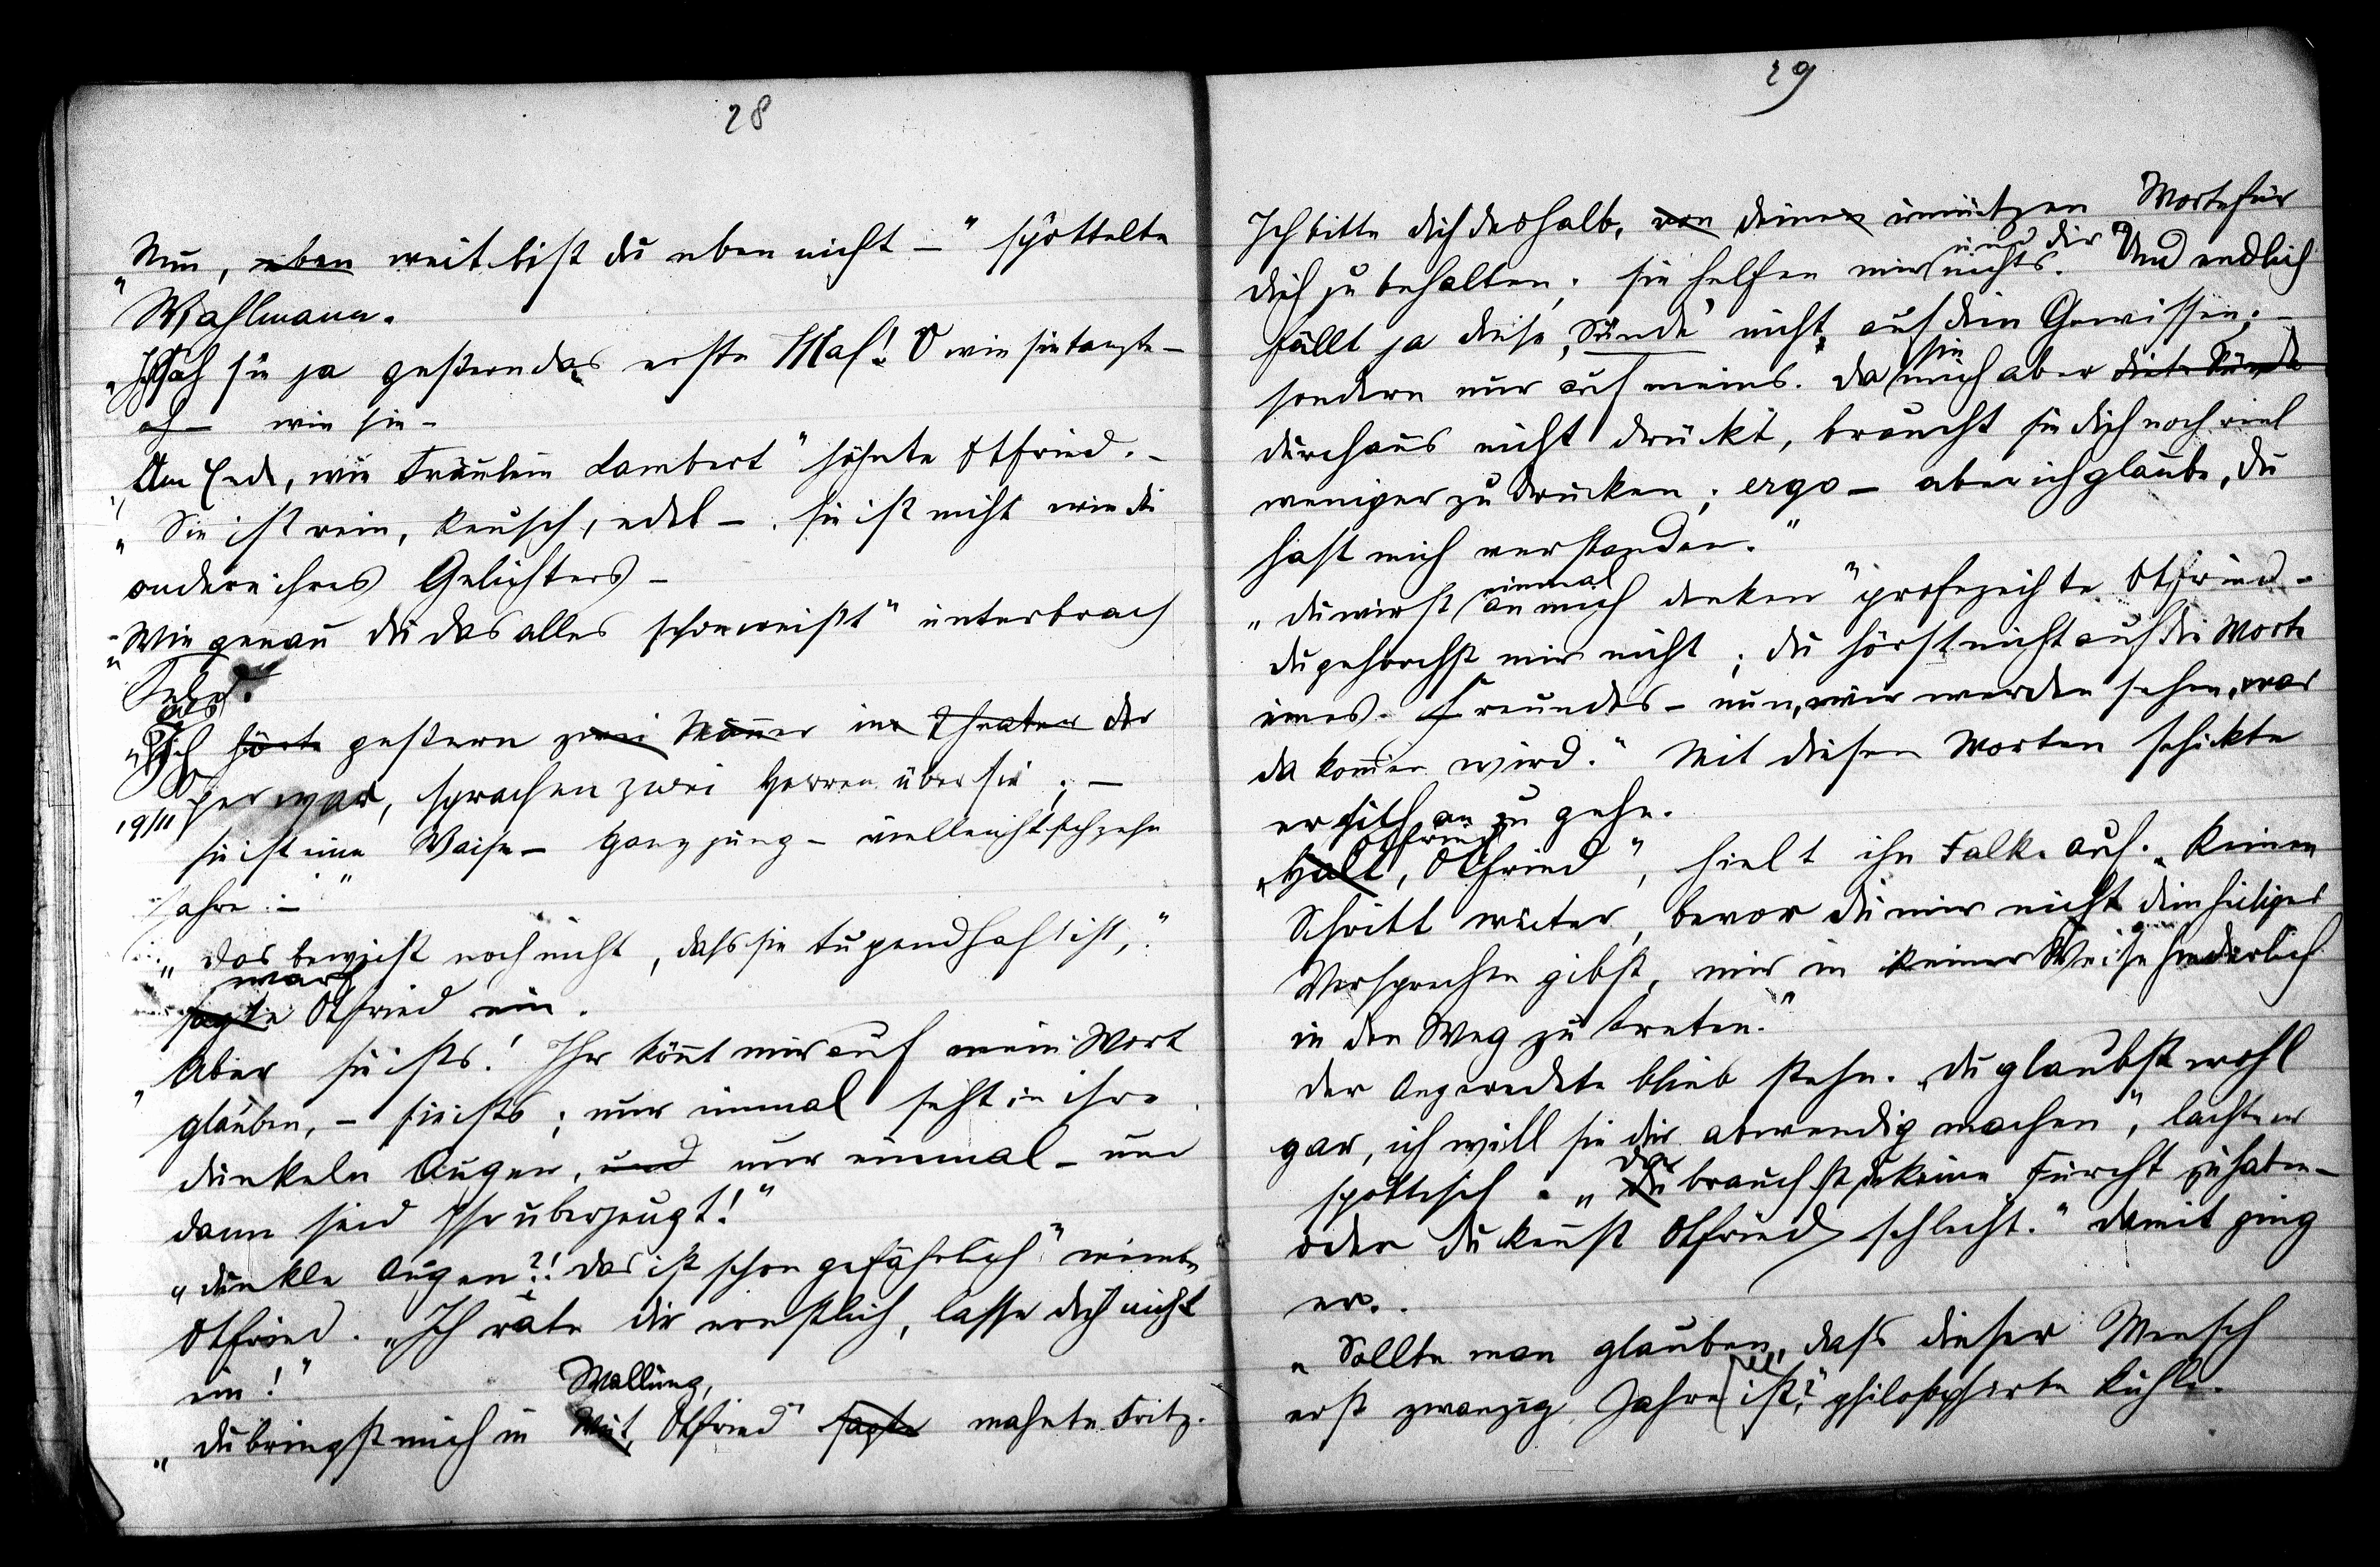 28
„Nun, eben weit bist du eben nicht –" spöttelte
Wahlmann.
„Ich sah sie ja gestern das erste Mal! O wie sie tanzte –
oh – wie sie –
„Am Ende, wie Fräulein Lambert" höhnte Otfried. –
„Sie ist rein, keusch, edel – sie ist nicht wie die
andere ihres Gelichters –
„Wie genau du das alles schon weißt" unterbrach
als
„Ich hörte gestern zwei Männer im Theater der
her war, sprachen zwei Herren über sie; –
19/II
sie ist eine Waise – ganz jung – vielleicht sechzehn
Jahre –"
„Das beweist noch nicht, dass sie tugendhaft ist,"
warf
sagte Otfried ein.
„Aber sie ists! Ihr könnt mir auf mein Wort
glauben, – sie ists; nur einmal seht in ihre
dunkeln Augen, und nur einmal – und
dann seid Ihr überzeugt!"
„Dunkle Augen?! Das ist schon gefährlich" meinte
Otfried. „Ich rate dir ernstlich, lasse dich nicht
ein!"
Wallung,
„Du bringst mich in Wut, Otfried" sagte mahnte Fritz.
29
Ich bitte dich deshalb, von deinen unnützen Worte für
und dir
dich zu behalten; sie helfen mir nichts. Und endlich
fällt ja diese ‚Sünde' nicht auf dein Gewissen; –
sie
sondern nur auf meins. Da mich aber diese Sünde
durchaus nicht drückt, braucht sie dich noch viel
weniger zu drücken; ergo – aber ich glaube, du
hast mich verstanden."
einmal
„Du wirst an mich denken" profezeihte Otfried –
du gehorchst mir nicht; du hörst nicht auf die Worte
eines Freundes – nun, wir werden sehen, was
da kommen wird." Mit diesen Worten schickte
er sich an zu gehn.
Otfried
„Halt, Otfried", hielt ihn Falk auf. „Keinen
Schritt weiter, bevor du mir nicht dein heiliges
Versprechen gibst, mir in keiner Weise hinderlich
in den Weg zu treten."
Der Angeredete blieb stehn. „Du glaubst wohl
gar, ich will sie dir abwendig machen", lachte er
spöttisch. „Da
Du brauchst du keine Furcht zu haben –
oder du kennst Otfried schlecht." Damit ging
er.
„Sollte man glauben, dass dieser Mensch
erst zwanzig Jahre ist?" philosophierte Kühle.